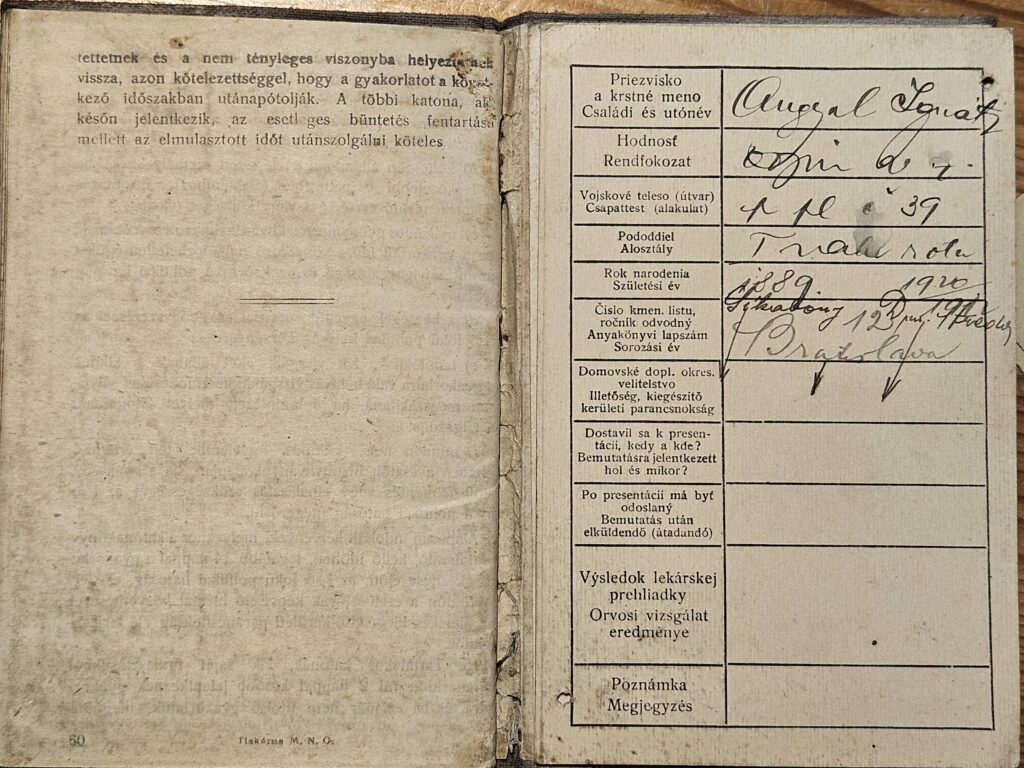 tettetnek és a nem tényleges viszonyba helyeztetnek
vissza, azon kötelezettséggel, hogy a gyakorlatot a követ-
kező időszakban utánapótolják. A többi katona, aki
későn jelentkezik, az esetl ges büntetés fentartása
mellett az elmulasztott időt utánszolgálni köteles
60
Tlakárna M. N. O.
Priezvisko
a krstné meno
Családi és utónév
Angyal Ignátz
Hodnosť
Rendfokozat
Vojskové teleso (útvar)
Csapattest (alakulat)
p pl č 39
Pododdiel
Alosztály
rota
Rok narodenia
Születési év
1889 1920
Číslo kmen. listu,
ročník odvodný
Anyakönyvi lapszám
Sorozási év
Bratislava
Domovské dopl. okres.
velitelstvo
Illetőség, kiegészítő
kerületi parancsnokság
Dostavil sa k presen-
tácii, kedy a kde?
Bemutatásra jelentkezett
hol és mikor?
Po presentácii má byť
odoslaný
Bemutatás után
elküldendő (átadandó)
Výsledok lekárskej
prehliadky
Orvosi vizsgálat
eredménye
Poznámka
Megjegyzés